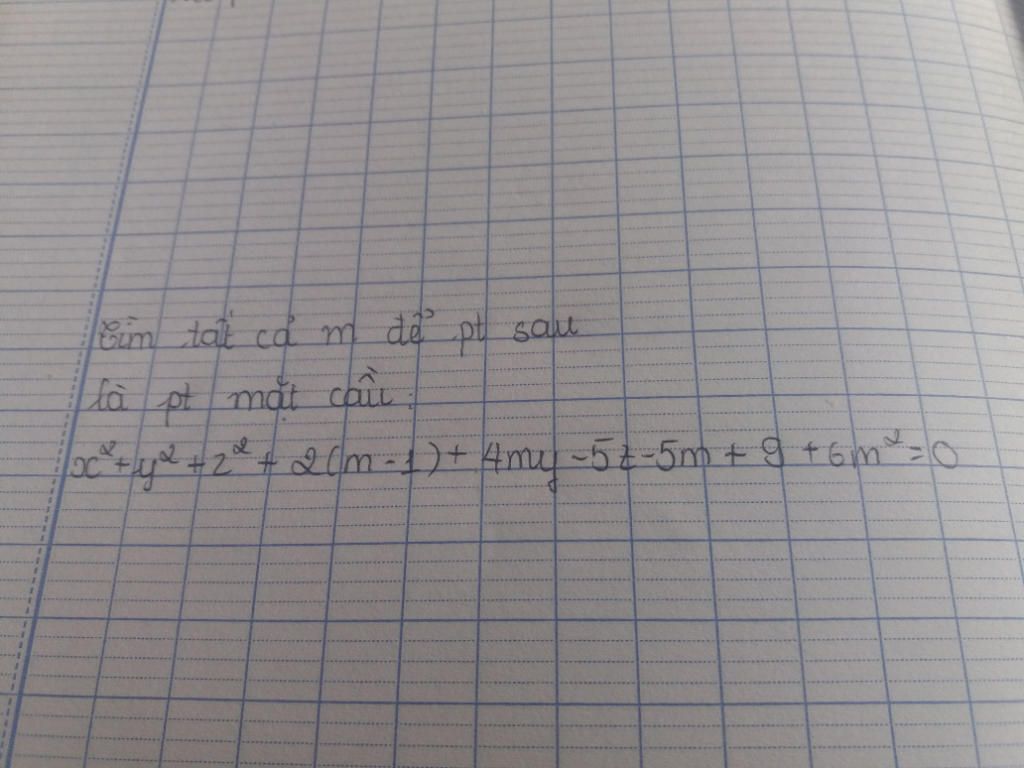 Tìm tất cả m để pt sau
là pt mặt cầu:
x² + y² + z² + 2(m-1) + 4my - 5z - 5m + 9 + 6m² = 0